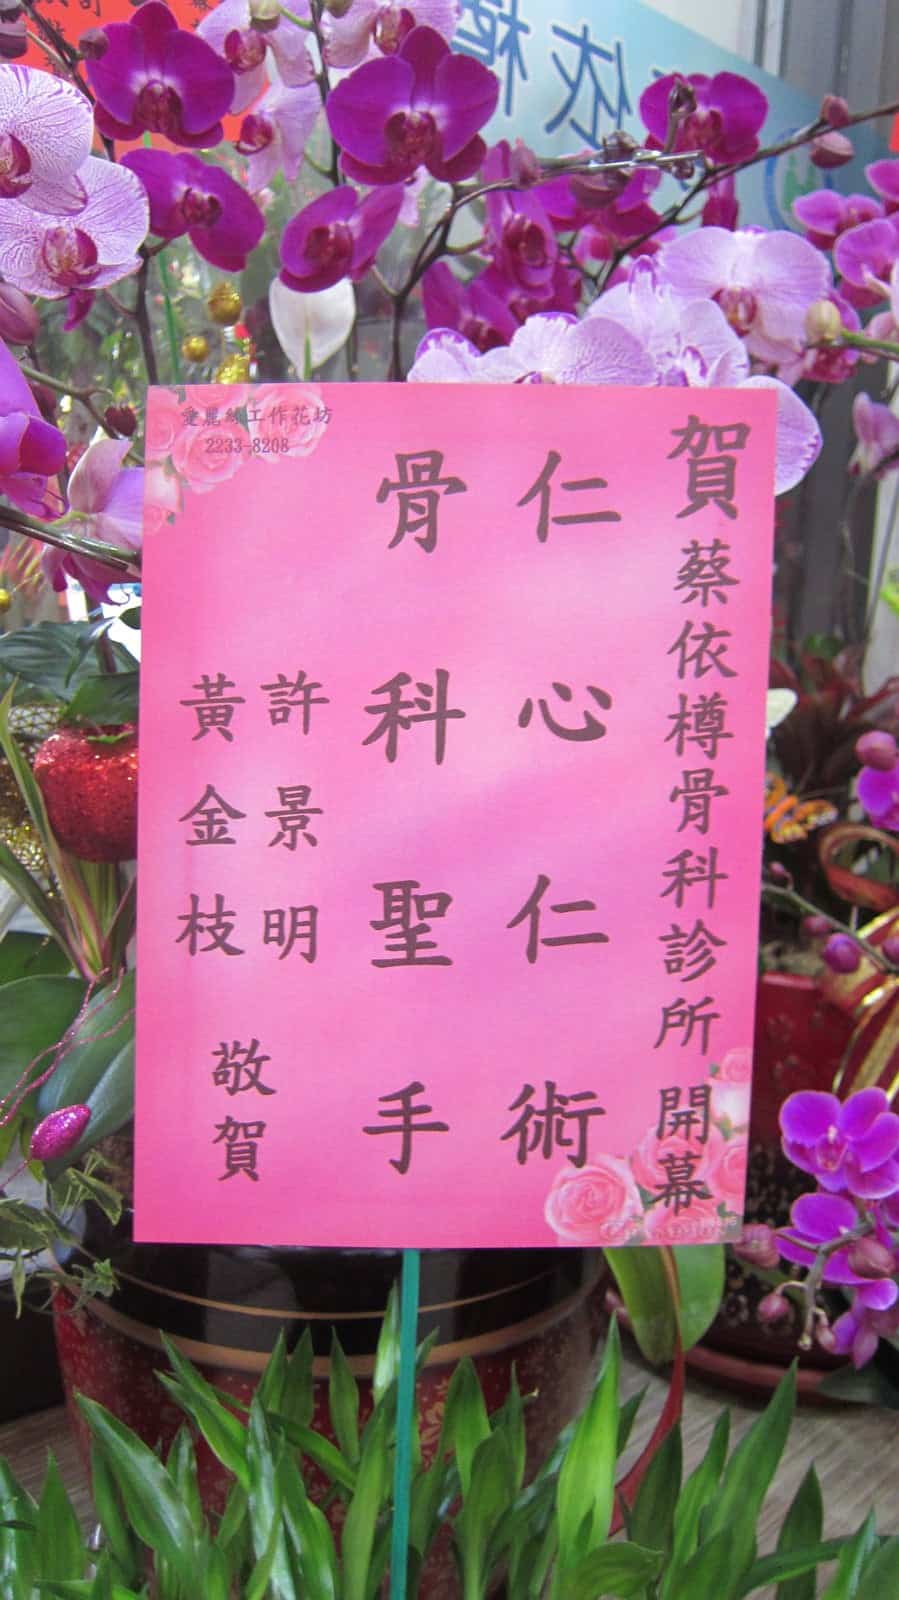 賀蔡依樽骨科診所開幕
仁心仁術
骨科聖手
許景明
黃金枝
敬賀
愛麗絲工作花坊
2233-8208
依樽